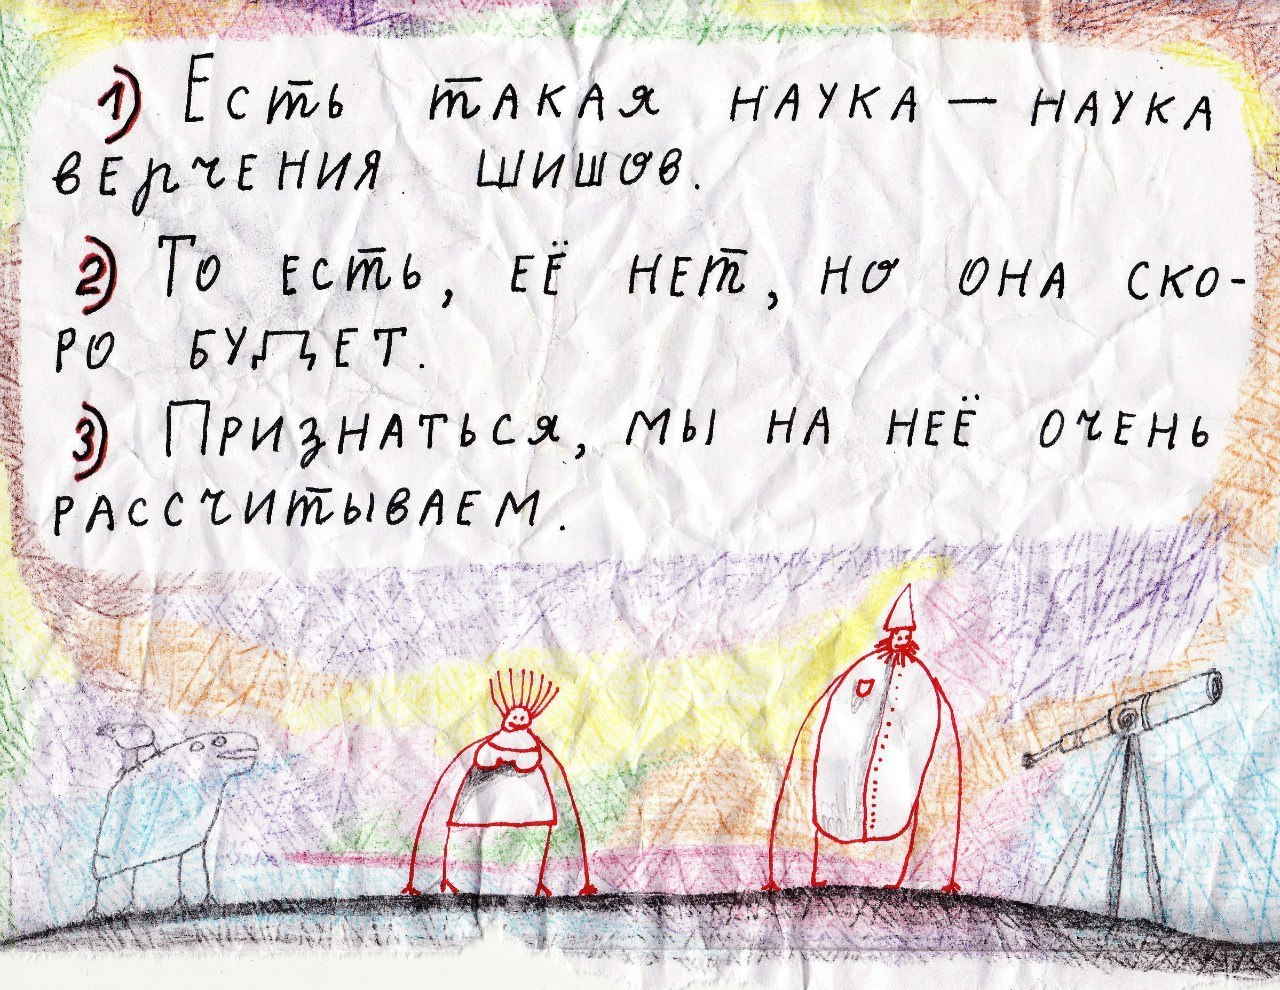 1) Есть такая наука — наука
верчения шишов.
2) То есть, её нет, но она ско-
ро будет.
3) Признаться, мы на неё очень
рассчитываем.